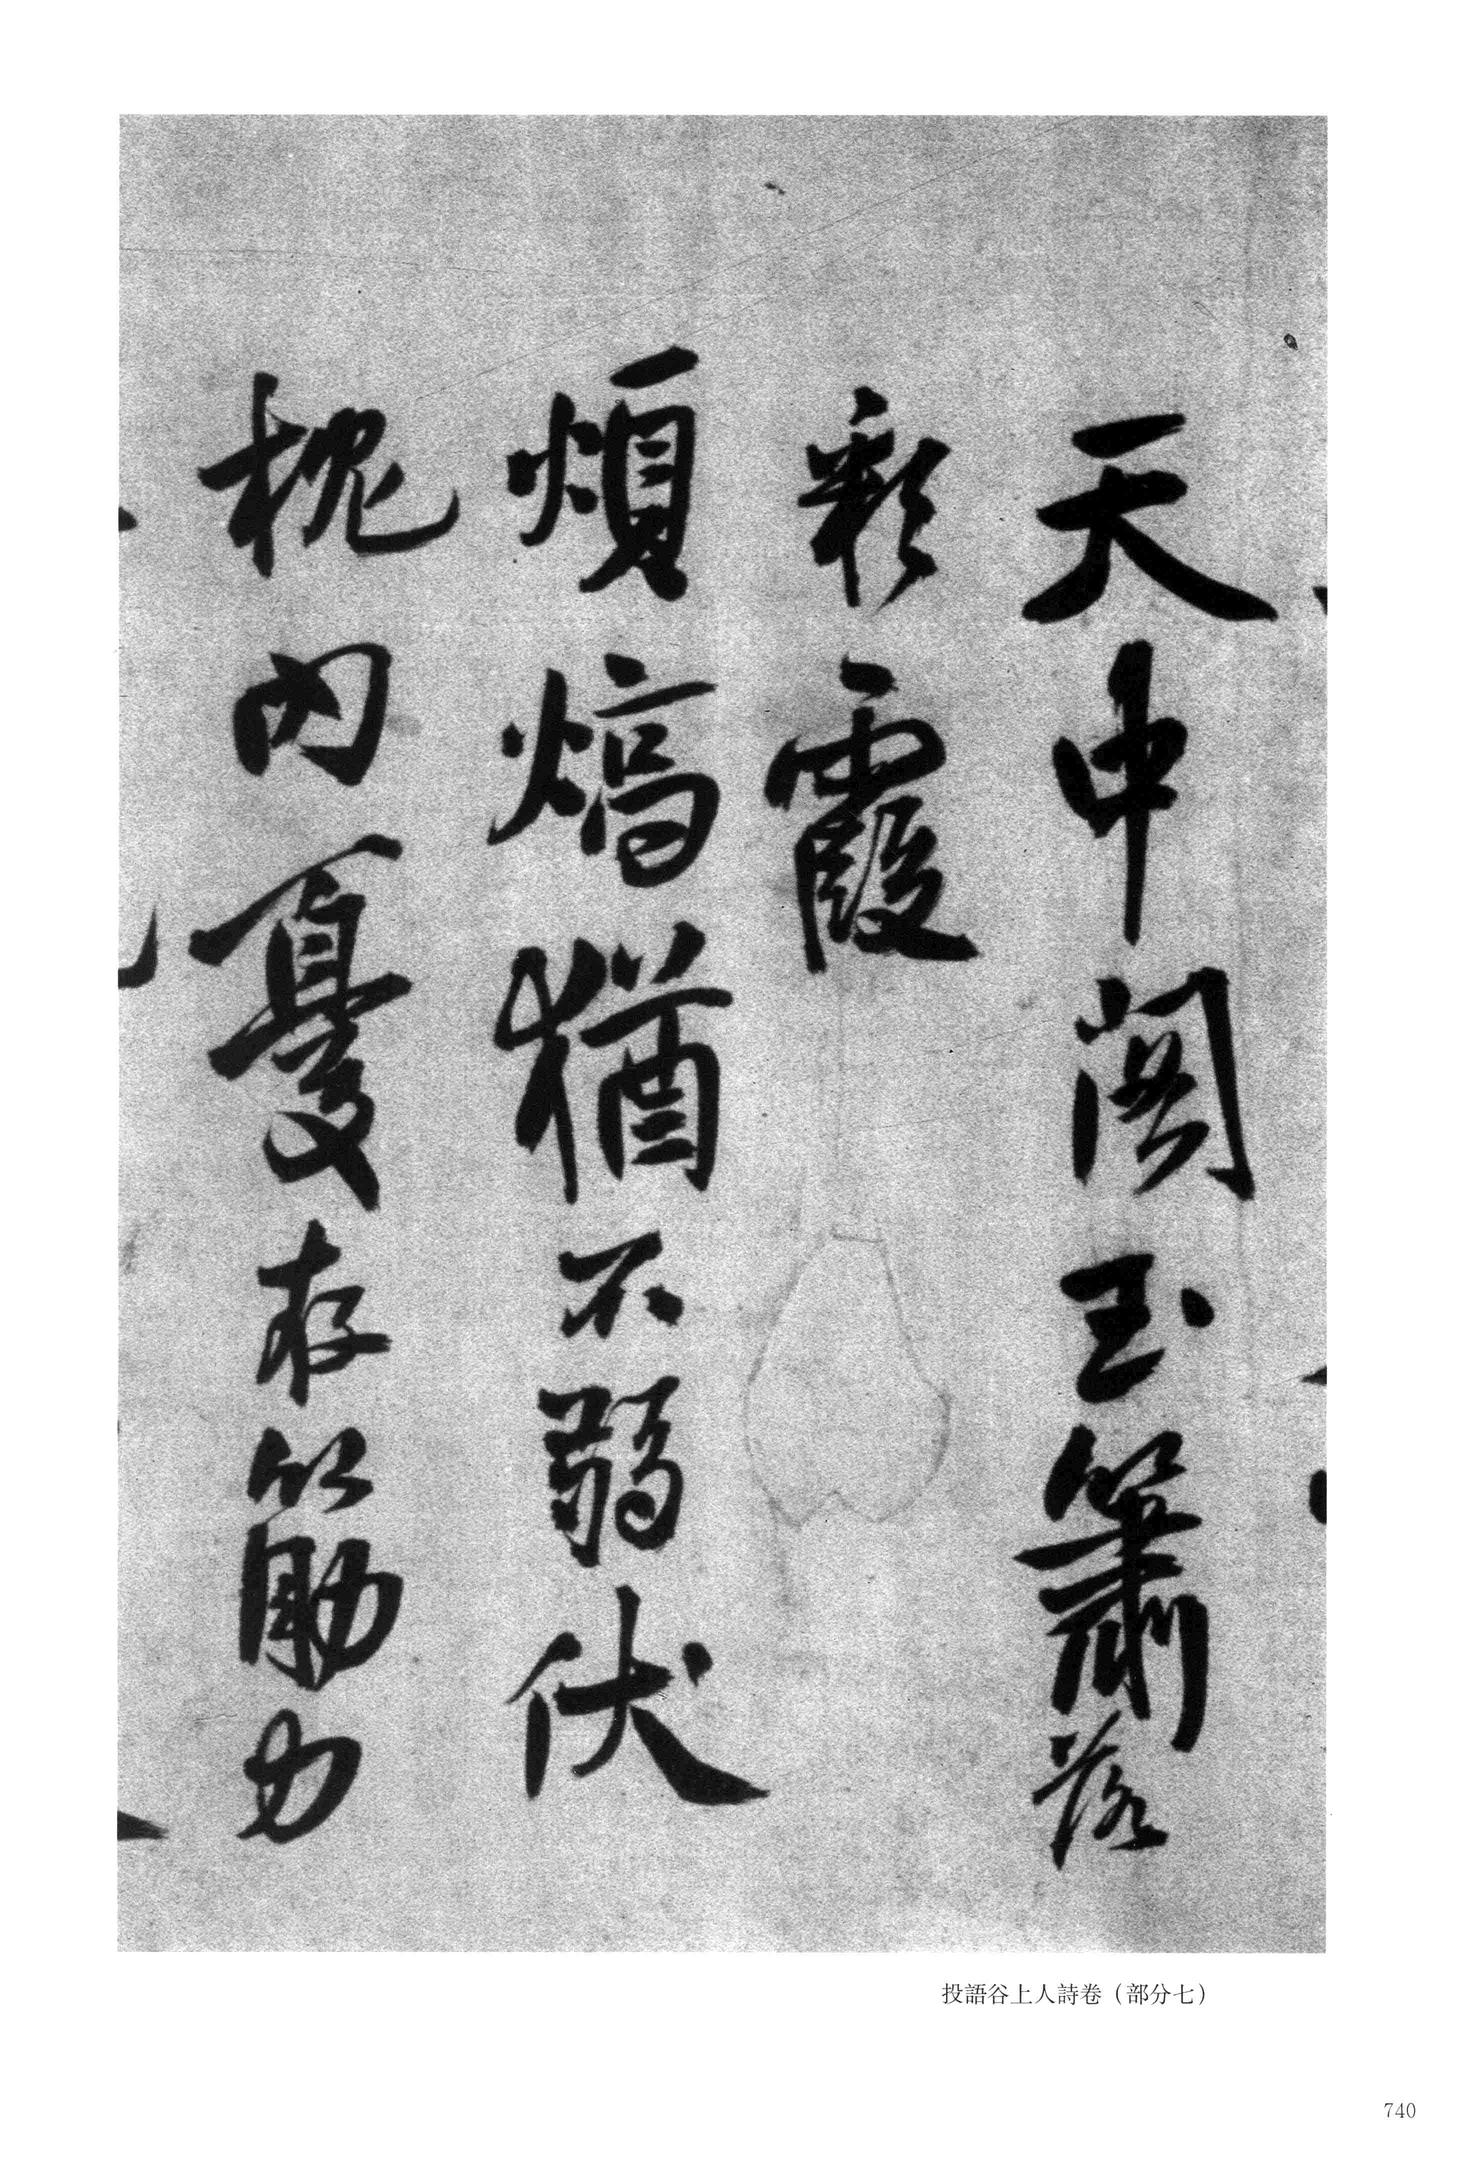 天中闋玉簫落
彩霞
煩熇猶不弱伏
枕內憂存筋力
投語谷上人詩卷（部分七）
740